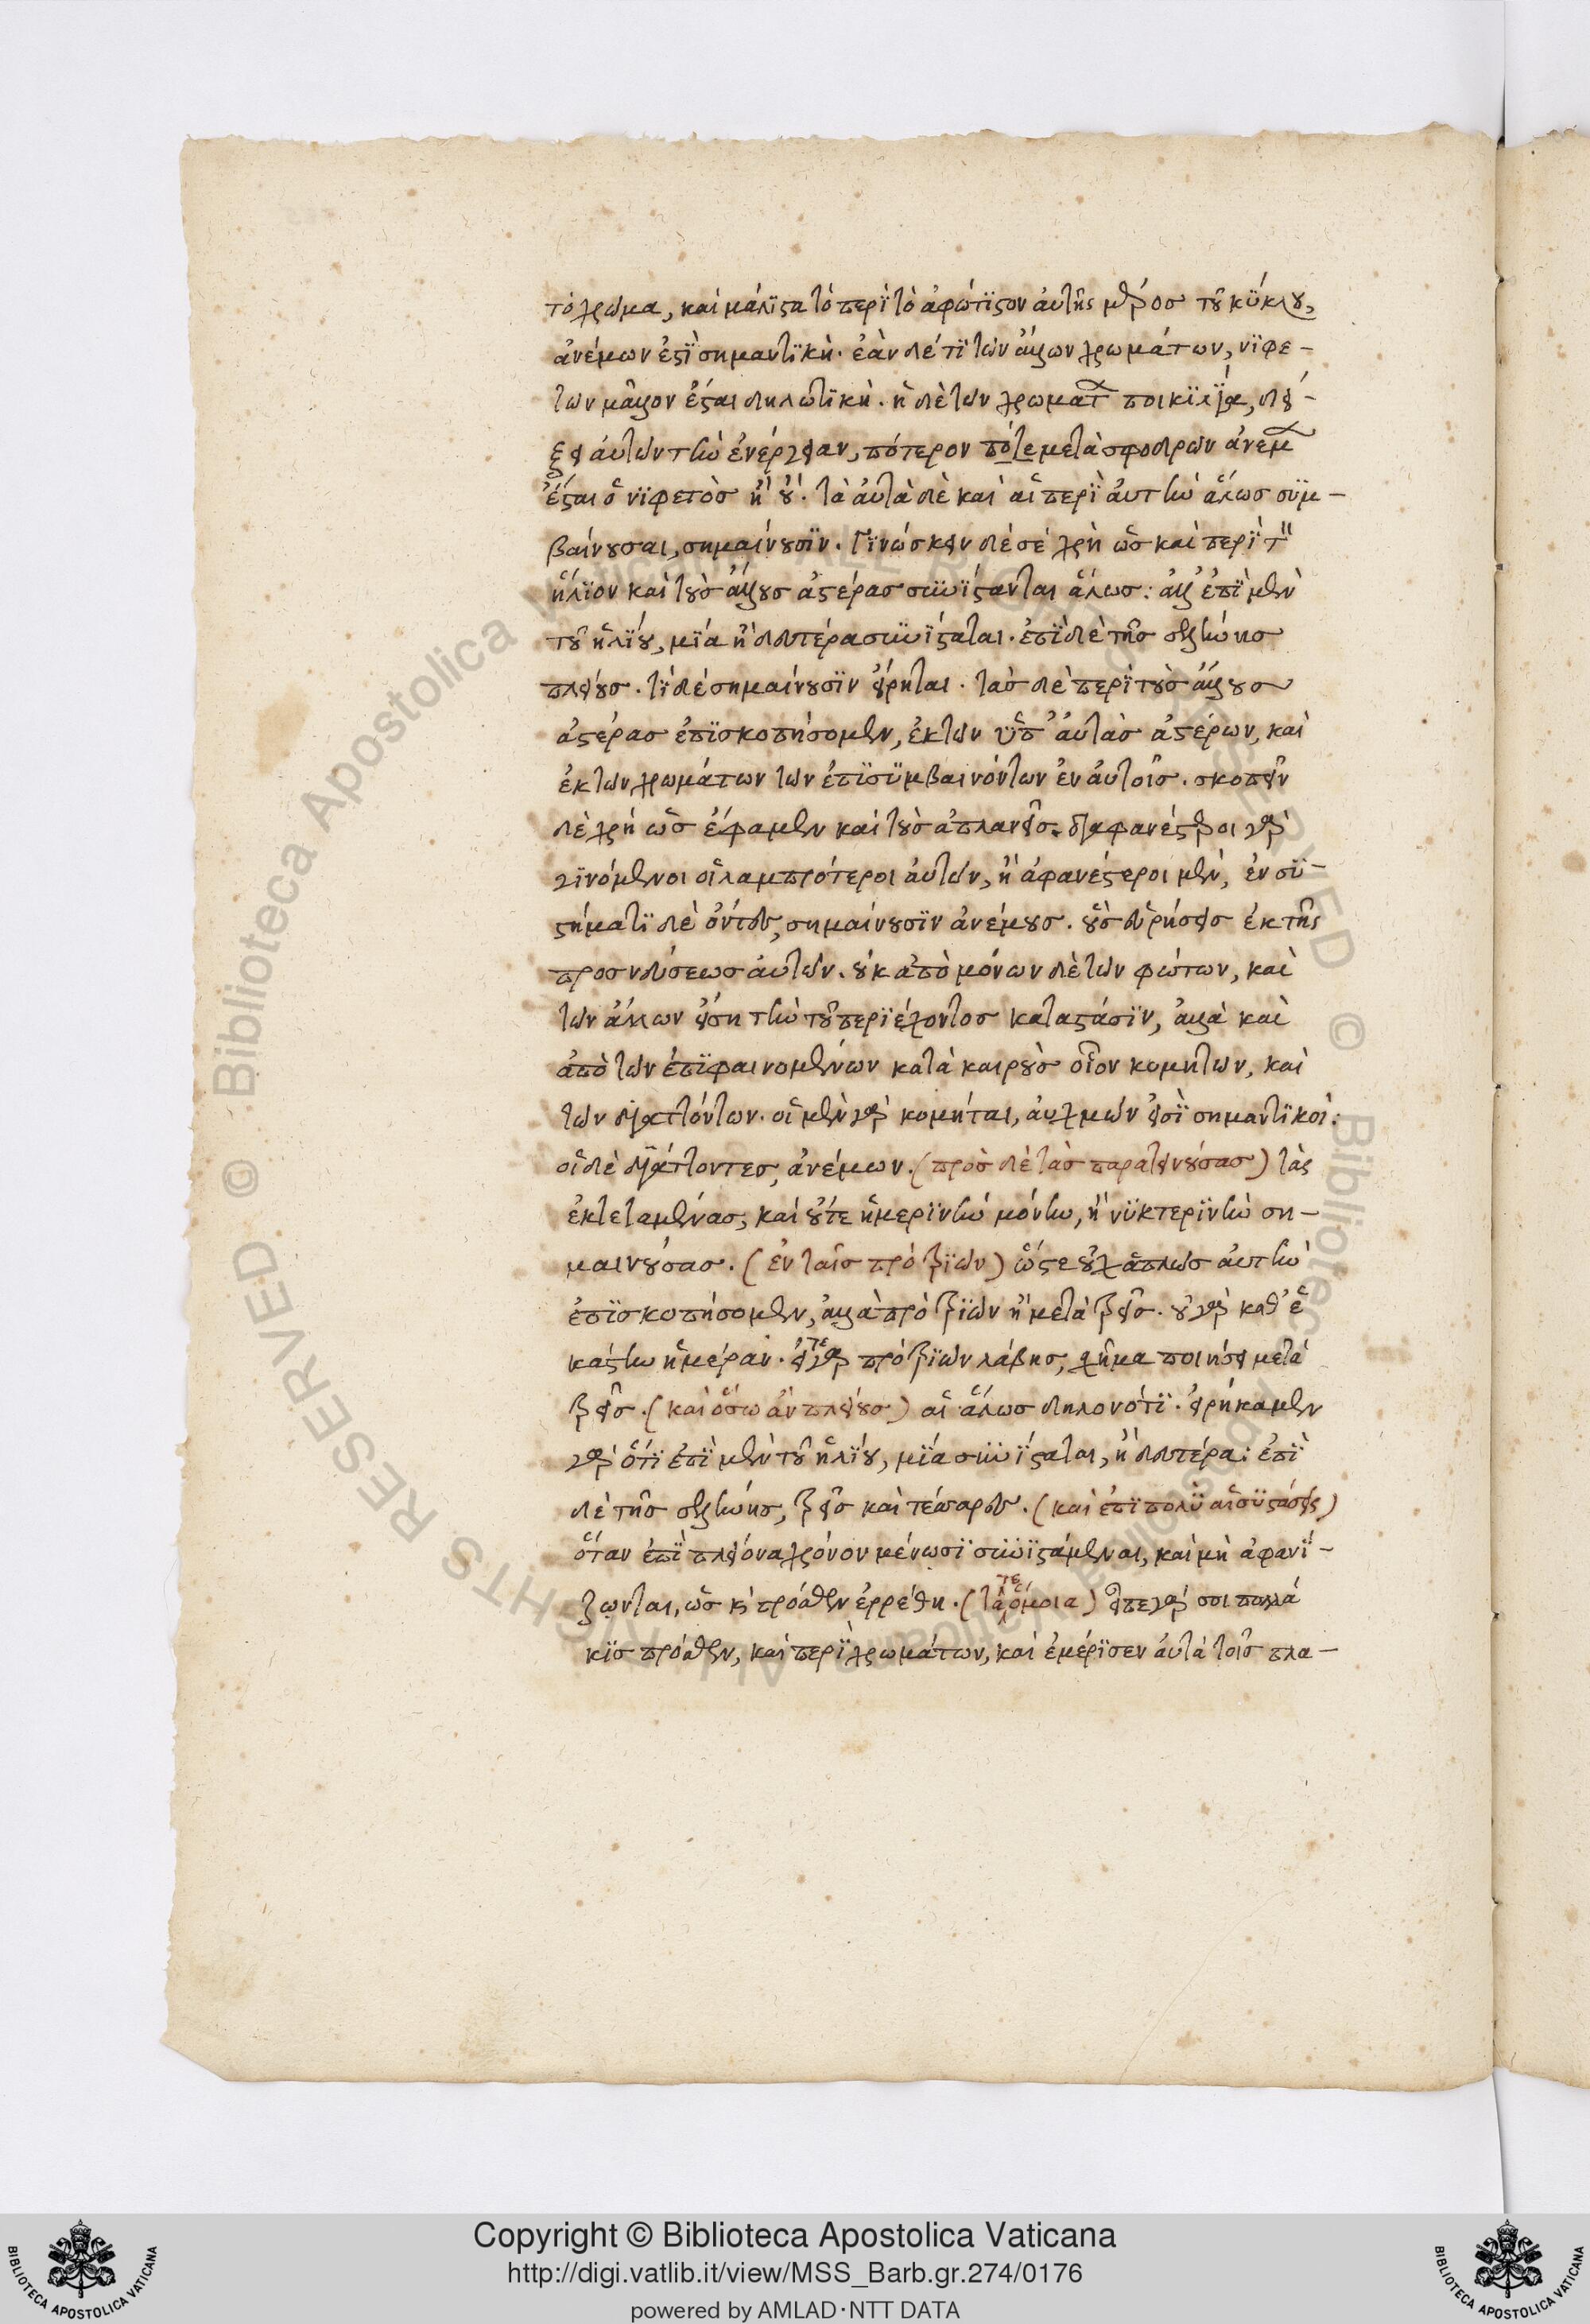 τὸ χρῶμα, καὶ μάλιστα τὸ περὶ τὸ ἀφώτιστον αὐτῆς μέρος τοῦ κύκλου,
ἀνέμων ἐστὶ σημαντικὴ. ἐὰν δέ τι τῶν ἄλλων χρωμάτων, νιφε-
τῶν μᾶλλον ἔσται δηλωτικὴ. ἡ δὲ τῶν χρωμάτ ποικιλία, δεί-
ξει αὐτῶν τὴν ἐνέργειαν, πότερον πότε μετὰ σφοδρῶν ἀνέμ
ἔσται ὁ νιφετὸς ἢ οὔ. τὰ αὐτὰ δὲ καὶ αἱ περὶ αὐτὴν ἅλως συμ-
βαίνουσαι, σημαίνουσιν. Γινώσκειν δέ σε χρὴ ὡς καὶ περὶ τ
ἥλιον καὶ τοὺς ἄλλους ἀστέρας συνίστανται ἅλως: ἀλλ' ἐπὶ μὲν
τοῦ ἡλίου, μία ἢ δευτέρα συνίσταται. ἐπὶ δὲ τῆς σελήνης
πλείους. τί δὲ σημαίνουσιν εἴρηται. τὰς δὲ περὶ τοὺς ἄλλους
ἀστέρας ἐπισκοπήσομεν, ἐκ τῶν ὑπ' αὐτὰς ἀστέρων, καὶ
ἐκ τῶν χρωμάτων τῶν ἐπισυμβαινόντων ἐν αὐτοῖς. σκοπεῖν
δὲ χρὴ ὡς ἔφαμεν καὶ τοὺς ἀπλανεῖς. διαφανέστεροι γὰρ
γινόμενοι οἱ λαμπρότεροι αὐτῶν, ἢ ἀφανέστεροι μὲν, ἐν συ-
στήματι δὲ ὄντες, σημαίνουσιν ἀνέμους. οὓς εὑρήσεις ἐκ τῆς
προσνεύσεως αὐτῶν. οὐκ ἀπὸ μόνων δὲ τῶν φώτων, καὶ
τῶν ἄλλων εἴση τὴν τοῦ περιέχοντος κατάστασιν, ἀλλὰ καὶ
ἀπὸ τῶν ἐπιφαινομένων κατὰ καιροὺς οἷον κομητῶν, καὶ
τῶν διαττόντων. οἱ μὲν γὰρ κομήται, αὐχμῶν εἰσὶ σημαντικοί:
οἱ δὲ διάττοντες, ἀνέμων. (πρὸς δὲ τὰς παρατεινούσας) τὰς
ἐκτεταμένας, καὶ οὔτε ἡμερινὴν μόνην, ἢ νυκτερινὴν ση-
μαινούσας. (ἐν ταῖς πρὸ τριῶν) ὥστε οὐχ ἁπλῶς αὐτὴν
ἐπισκοπήσομεν, ἀλλὰ πρὸ τριῶν ἢ μετὰ τρεῖς. οὐ γὰρ καθ' ἑ
κάστην ἡμέραν. εἴτε γὰρ πρὸ τριῶν λάβης, σχῆμα ποιήσει μετὰ
τρεῖς. (καὶ ὅσω ἂν πλείους) αἱ ἅλως δηλονότι. εἰρήκαμεν
γὰρ ὅτι ἐπὶ μὲν τοῦ ἡλίου, μία συνίσταται, ἢ δευτέρα: ἐπὶ
δὲ τῆς σελήνης, τρεῖς καὶ τέσσαρες. (καὶ ἐπὶ πολὺ αἱ συστάσεις)
ὅταν ἐπὶ πλείονα χρόνον μένωσι συνιστάμεναι, καὶ μὴ ἀφανί-
ζωνται, ὡς καὶ πρόσθεν ἐρρέθη. (τά τε ὅμοια) εἶπε γάρ σοι πολλά
κις πρόσθεν, καὶ περὶ χρωμάτων, καὶ ἐμέρισεν αὐτὰ τοῖς πλα-
Copyright © Biblioteca Apostolica Vaticana
http://digi.vatlib.it/view/MSS_Barb.gr.274/0176
powered by AMLAD·NTT DATA